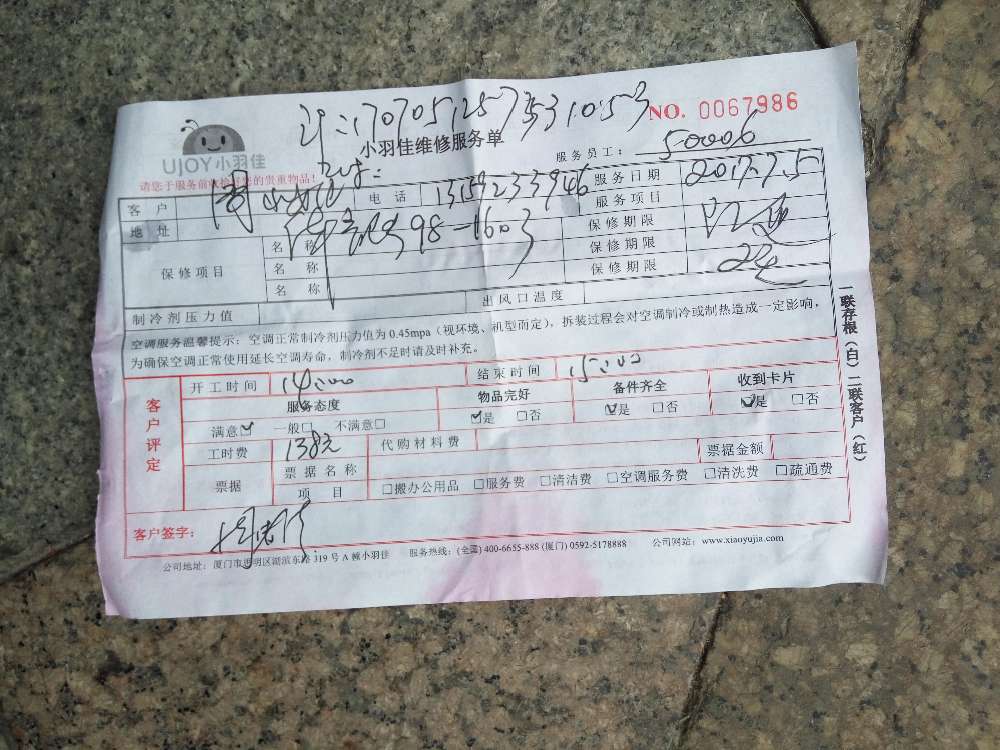 17070512573531053
NO. 0067986
UJOY小羽佳
小羽佳维修服务单
服务员工： 50006
请您于服务前收检好您的贵重物品！
客 户 电 话 13159233946 服务日期 2017.7.5
地 址 98-1603 服务项目
保修项目
名 称 保修期限
名 称 保修期限
名 称 保修期限
制冷剂压力值 出风口温度
空调服务温馨提示：空调正常制冷剂压力值为0.45mpa（视环境、机型而定），拆装过程会对空调制冷或制热造成一定影响，
为确保空调正常使用延长空调寿命，制冷剂不足时请及时补充。
客户评定
开工时间 14:00 结束时间 15:00
服务态度 物品完好 备件齐全 收到卡片
满意☑ 一般□ 不满意□ ☑是 □否 ☑是 □否 ☑是 □否
工时费 138元 代购材料费
票据 票据名称 票据金额
项 目 □搬办公用品 □服务费 □清洁费 □空调服务费 □清洗费 □疏通费
客户签字：
公司地址：厦门市思明区湖滨东路319号A幢小羽佳 服务热线：(全国) 400-6655-888 (厦门) 0592-5178888 公司网站：www.xiaoyujia.com
一联存根（白）二联客户（红）